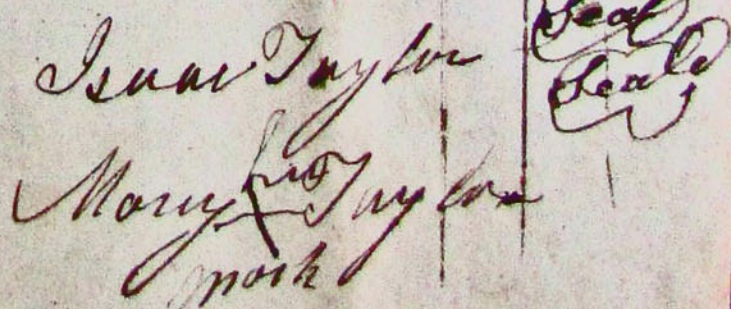 Isaac Taylor Seal
Seal
her
Mary X Taylor
mark